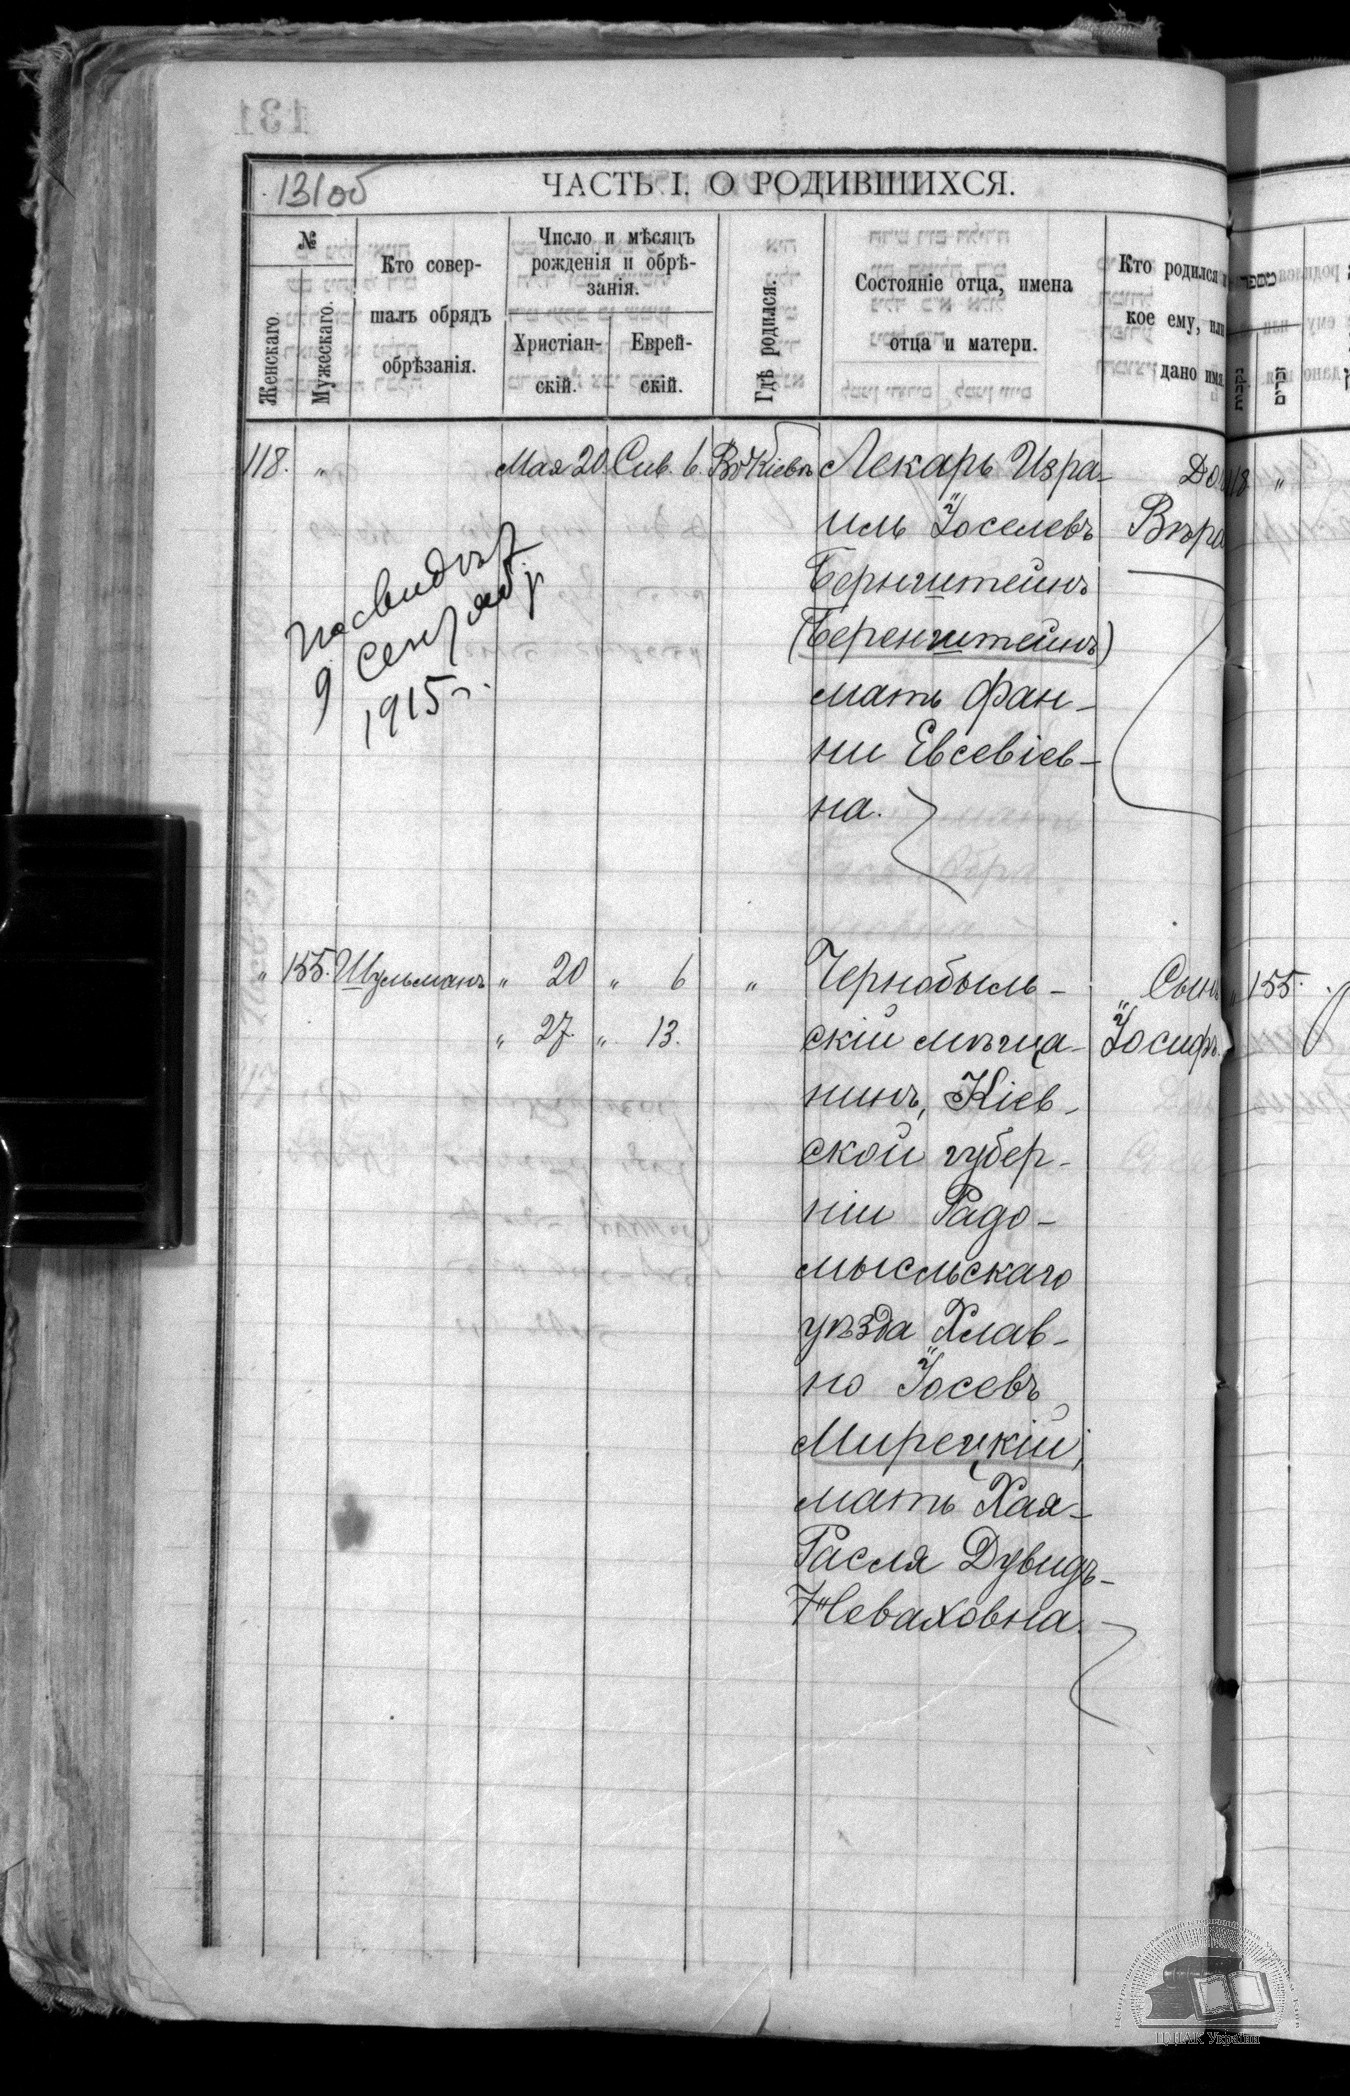 131об
ЧАСТЬ I. О РОДИВШИХСЯ.
№
Женскаго.
Мужескаго.
Кто совер-
шалъ обрядъ
обрѣзанія.
Число и мѣсяцъ
рожденія и обрѣ-
занія.
Христіан-
скій.
Еврей-
скій.
Гдѣ родился.
Состояніе отца, имена
отца и матери.
Кто родился и
кое ему, или
дано имя.
118. " Мая 20. Сив. 6. Въ Кіевѣ Лекарь Изра-
иль Іоселевъ
Бернштейнъ
(Беренштейнъ)
мать Фан-
ни Евсевіев-
на.
Вѣра
9 Сентябр
1915 г.
" 155. Шульманъ " 20 " 6 " Чернобыль- Сынъ
" 27. " 13. скій мѣща- Іосифъ.
нинъ, Кіев-
ской губер-
ніи Радо-
мысльскаго
уѣзда Хлав-
но Іосевъ
Мирецкій,
мать Хая-
Расля Дувидъ-
Неваховна.
118 "
" 155.
ЦДІАК України